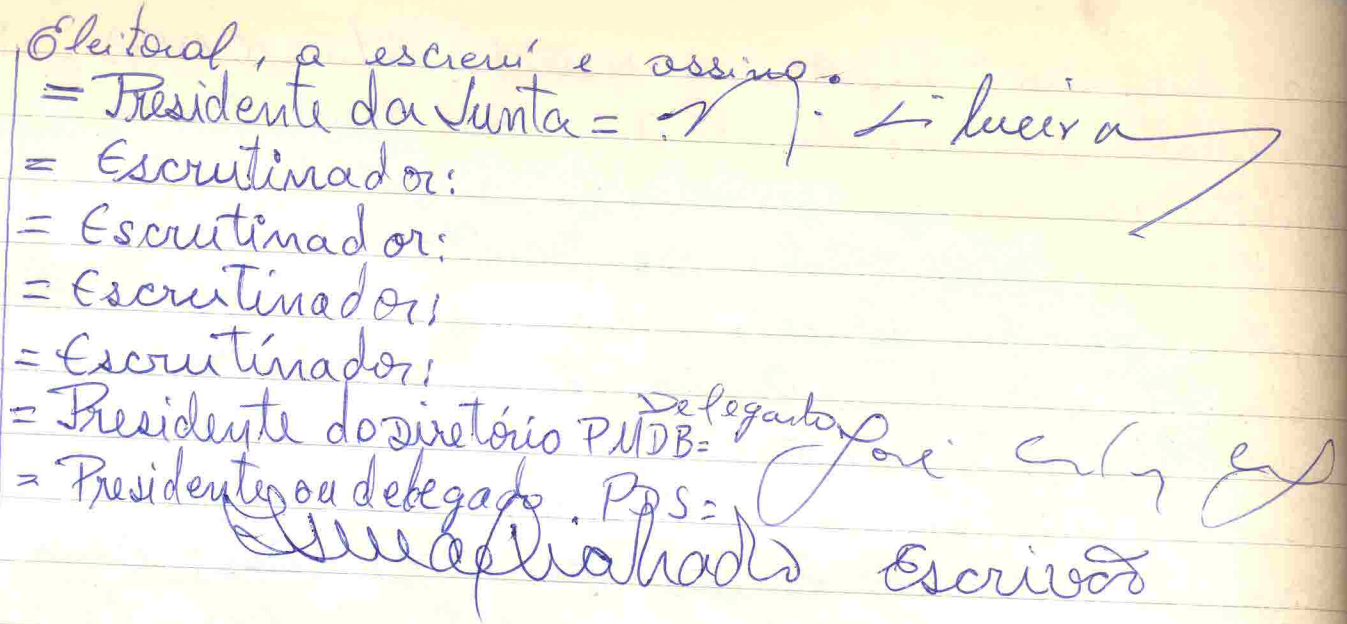 Eleitoral, a escreví e assino.
= Presidente da Junta =
= Escrutinador:
= Escrutinador:
= Escrutinador:
= Escrutinador:
= Presidente do Diretório PMDB= Delegado José
= Presidente ou delegado. PDS=
Escrivão